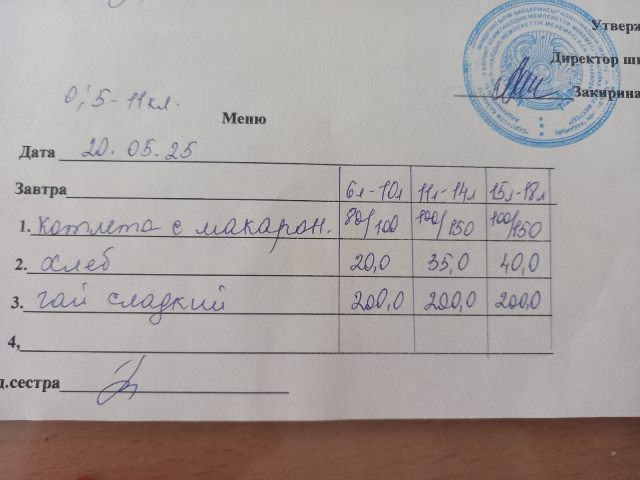 Утверж
Директор шк
Закирина
0; 5-11 кл.
Меню
Дата 20.05.25
Завтра 6л-10л 11л-14л 15л-18л
1. котлета с макарон. 80/100 100/150 100/150
2. хлеб 20,0 35,0 40,0
3. чай сладкий 200,0 200,0 200,0
4,
д.сестра